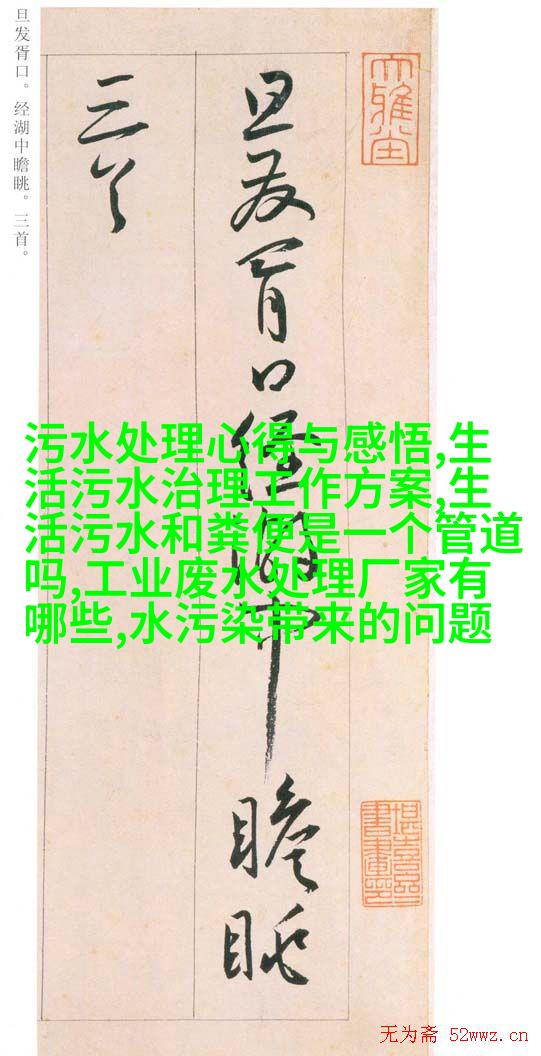 旦发胥口。经湖中瞻眺。三首。
旦发胥口经湖中瞻眺
三首
污水处理心得与感悟,生
活污水治理工作方案,生
活污水和粪便是一个管道
吗,工业废水处理厂家有
哪些,水污染带来的问题
无为斋 52wwz.cn